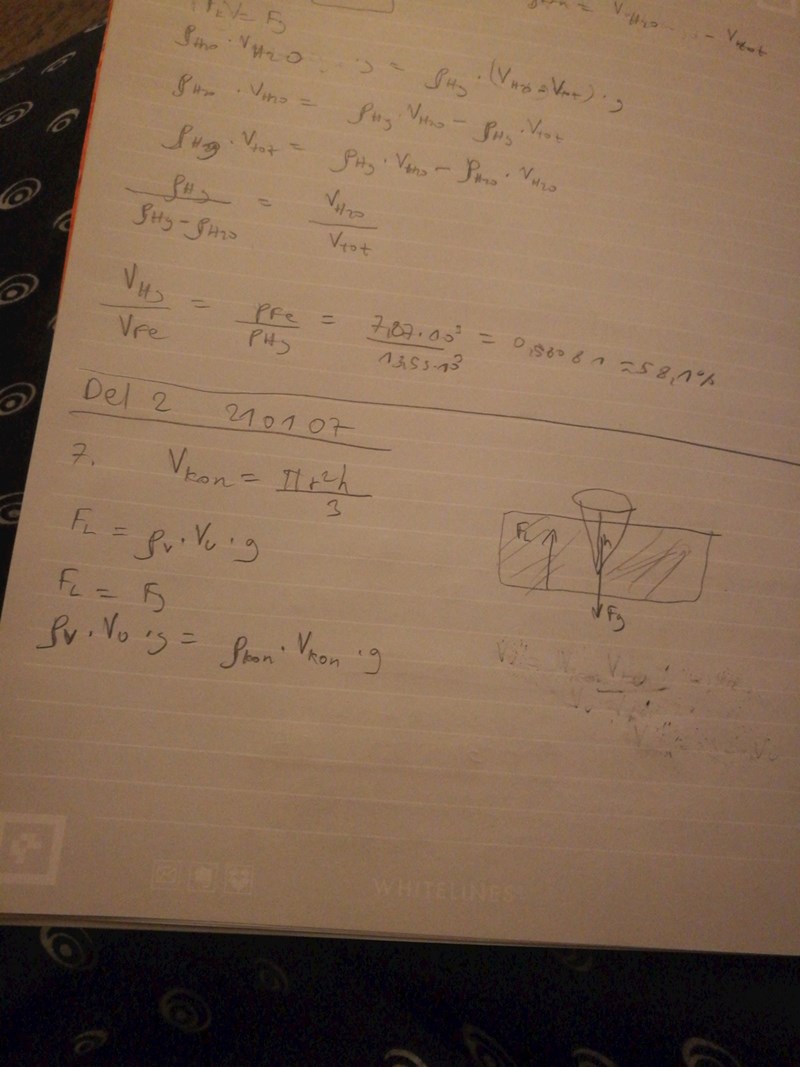 F_L = F_g
V_H2O - V_tot
ρ_H2O · V_H2O · g = ρ_Hg · (V_H2O - V_tot) · g
ρ_H2O · V_H2O = ρ_Hg · V_H2O - ρ_Hg · V_tot
ρ_Hg · V_tot = ρ_Hg · V_H2O - ρ_H2O · V_H2O
ρ_Hg / (ρ_Hg - ρ_H2O) = V_H2O / V_tot
V_Hg / V_Fe = ρ_Fe / ρ_Hg = 7,87·10³ / 13,55·10³ = 0,58081 ≈ 58,1%
Del 2 210107
7. V_kon = πr²h / 3
F_L
h
F_g
F_L = ρ_v · V_u · g
F_L = F_g
ρ_v · V_u · g = ρ_kon · V_kon · g
WHITELINES